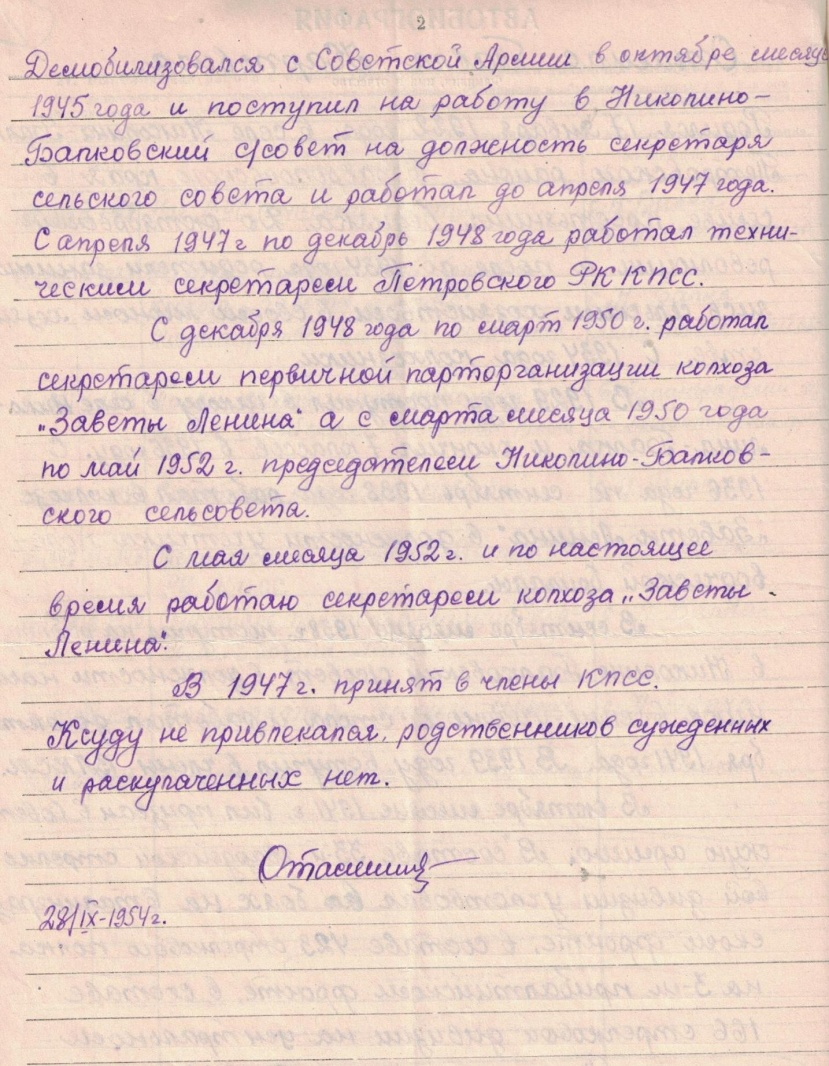 2
Демобилизовался с Советской Армии в октябре месяце
1945 года и поступил на работу в Николино-
Балковский с/совет на должность секретаря
сельского совета и работал до апреля 1947 года.
С апреля 1947 г по декабрь 1948 года работал техни-
ческим секретарем Петровского РК КПСС.
С декабря 1948 года по март 1950 г. работал
секретарем первичной парторганизации колхоза
"Заветы Ленина" а с марта месяца 1950 года
по май 1952 г. председателем Николино-Балков-
ского сельсовета.
С мая месяца 1952 г. и по настоящее
время работаю секретарем колхоза „Заветы
Ленина".
В 1947 г. принят в члены КПСС.
К суду не привлекался, родственников сужденных
и раскулаченных нет.
28/IX-1954 г.